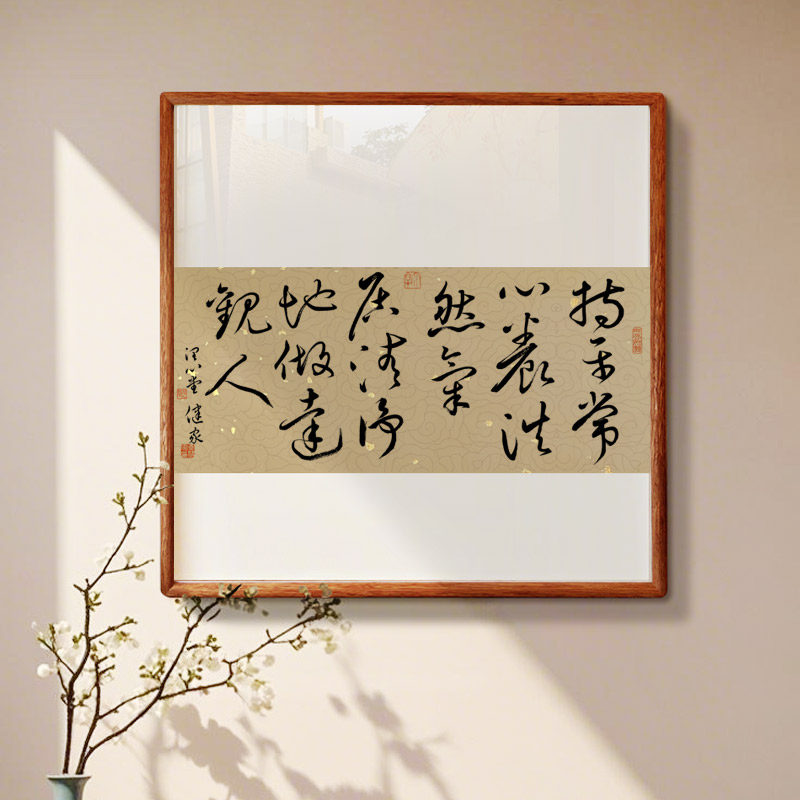 持平常
心養浩
然氣
居清淨
地做達
觀人
心堂
健家